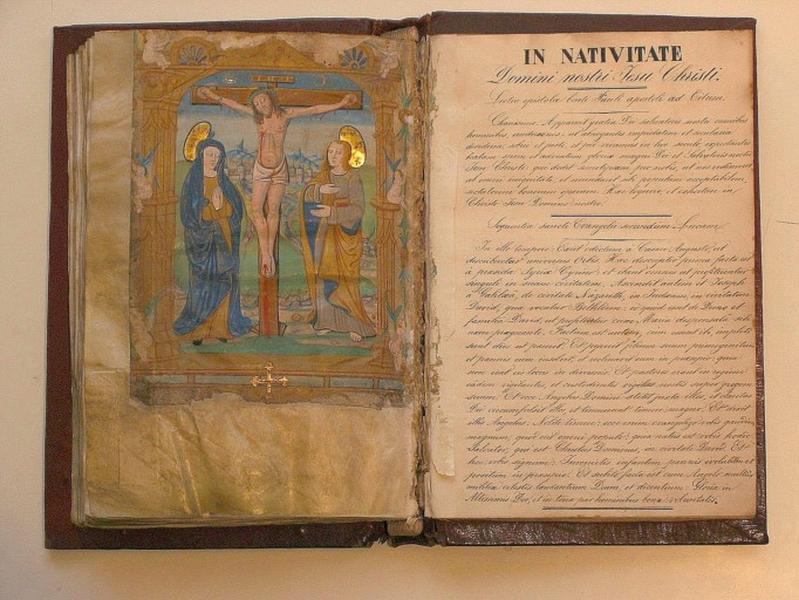 IN NATIVITATE
Domini nostri Jesu Christi.
Lectio epistola beati Pauli apostoli ad Titum.
Charissime. Apparuit gratia Dei salvatoris nostri omnibus
hominibus, erudiens nos, ut abnegantes impietatem et secularia
desideria, sobrie et juste, et pie vivamus in hoc seculo expectantes
beatam spem et adventum gloriæ magni Dei et Salvatoris nostri
Jesu Christi: qui dedit semetipsum pro nobis, ut nos redimeret
ab omni iniquitate, et mundaret sibi populum acceptabilem,
sectatorem bonorum operum. Hæc loquere, et exhortare in
Christo Jesu Domino nostro.
Sequentia sancti Evangelii secundum Lucam.
In illo tempore: Exiit edictum a Cæsare Augusto, ut
describeretur universus Orbis. Hæc descriptio prima facta est
à præside Syriæ Cyrino: et ibant omnes ut profiterentur
singuli in suam civitatem. Ascendit autem et Joseph
à Galilæa, de civitate Nazareth, in Judæam, in civitatem
David, quæ vocatur Bethleem: eo quod esset de Domo et
familia David, ut profiteretur cum Maria desponsata sibi
uxore prægnante. Factum est autem, cum essent ibi, impleti
sunt dies ut pareret. Et peperit filium suum primogenitum
et pannis eum involvit, et reclinavit eum in præsepio: quia
non erat eis locus in diversorio. Et pastores erant in regione
eâdem vigilantes, et custodientes vigilias noctis super gregem
suum. Et ecce Angelus Domini stetit juxta illos, et claritas
Dei circumfulsit illos, et timuerunt timore magno. Et dixit
illis Angelus: Nolite timere: ecce enim evangelizo vobis gaudium
magnum, quod erit omni populo: quia natus est vobis hodie
Salvator, qui est Christus Dominus, in civitate David. Et
hoc vobis signum: Invenietis infantem pannis involutum et
positum in præsepio. Et subito facta est cum Angelo multitudo
militiæ cælestis laudantium Deum, et dicentium: Gloria in
Altissimis Deo, et in terra pax hominibus bonæ voluntatis.